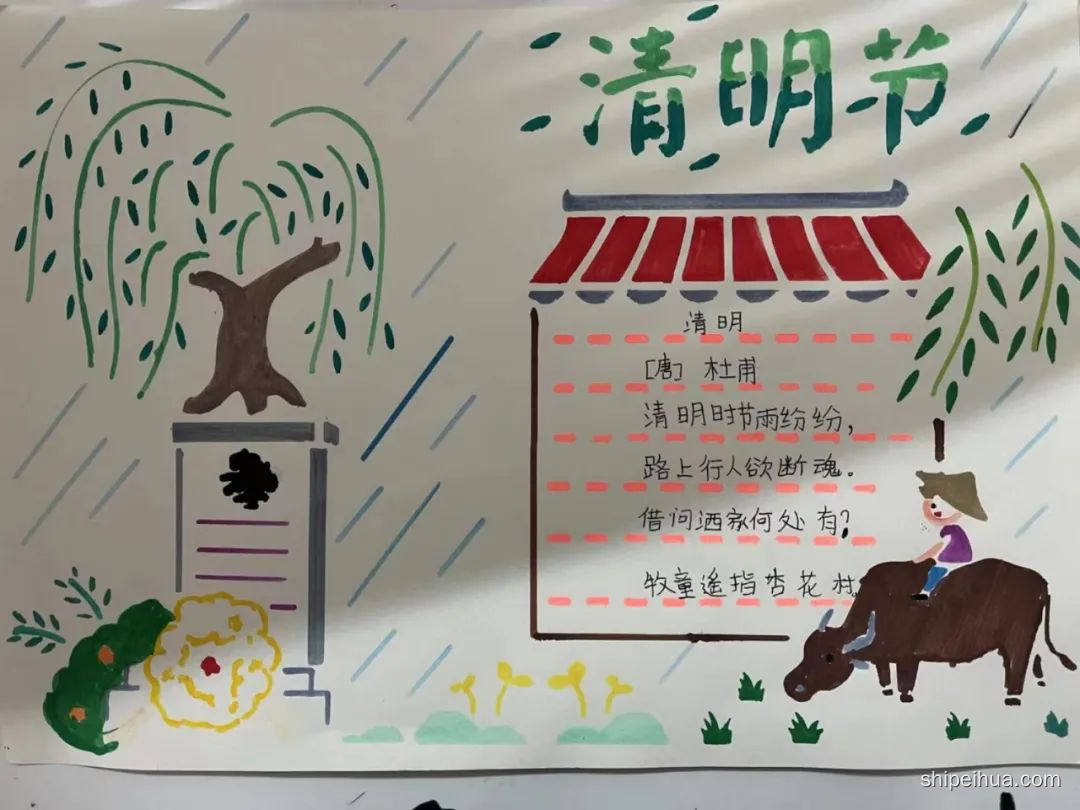 清明节
清明
[唐] 杜甫
清明时节雨纷纷，
路上行人欲断魂。
借问洒家何处有?
牧童遥指杏花村
shipeihua.com